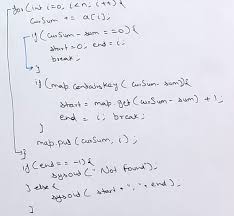 for(int i=0; i<n; i++) {
curSum += a[i];
if(curSum - sum ==0) {
start=0; end=i;
break;
}
if(map.containsKey(curSum-sum)){
start = map.get(curSum-sum)+1;
end = i; break;
}
map.put(curSum, i);
}
if(end==-1){
sysout("Not found");
} else {
sysout(start+","+end);